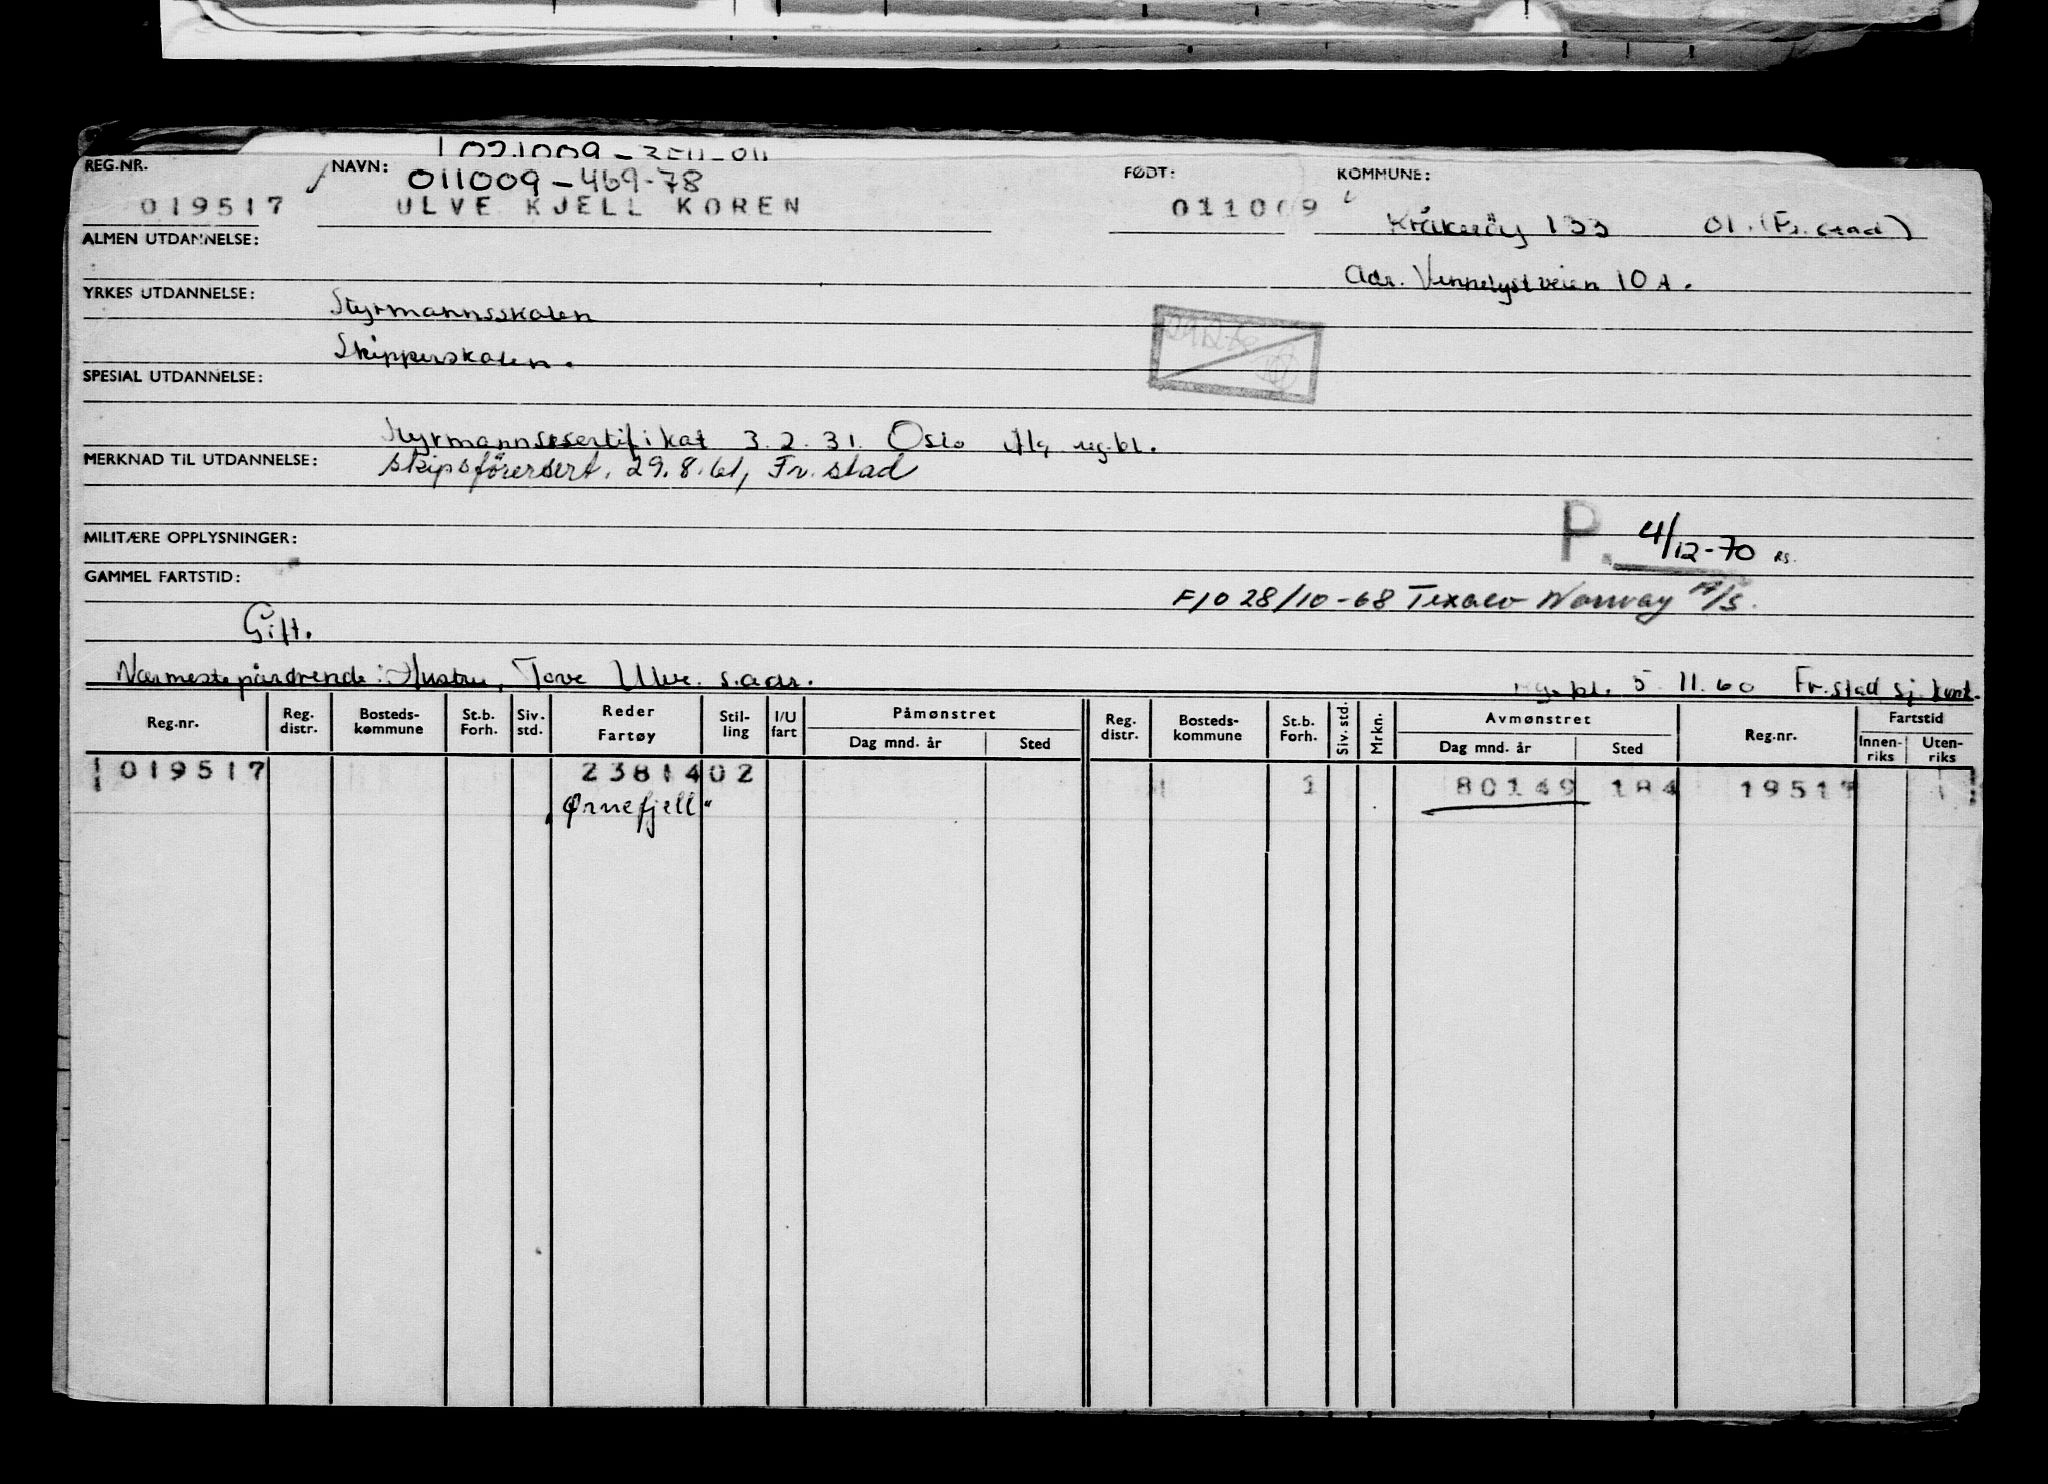 REG.NR.
NAVN:
011009-469-78
FØDT:
KOMMUNE:
019517
ULVE KJELL KOREN
011009
Kråkerøy 133 01. (Fr. stad)
ALMEN UTDANNELSE:
Adr. Vennelystveien 10 A.
YRKES UTDANNELSE:
Styrmannsskolen
Skipperskolen.
SPESIAL UTDANNELSE:
Styrmannssertifikat 3.2.31. Oslo reg.bl.
MERKNAD TIL UTDANNELSE:
Skipsførersert. 29.8.61, Fr. stad
MILITÆRE OPPLYSNINGER:
P. 4/12-70 RS.
GAMMEL FARTSTID:
F/O 28/10-68 Texaco Norway A/S.
Gift.
Nærmeste pårørende: Hustru, Tove Ulve. s. adr.
5.11.60 Fr.stad sj. kont.
Reg.nr.
Reg. distr.
Bosteds-kommune
St.b. Forh.
Siv. std.
Reder Fartøy
Stil-ling
I/U fart
Påmønstret
Dag mnd. år
Sted
Reg. distr.
Bosteds-kommune
St.b. Forh.
Siv. std.
Mrkn.
Avmønstret
Dag mnd. år
Sted
Reg.nr.
Fartstid
Innen-riks
Uten-riks
019517
23814 02
1
80149 184
19517
"Ørnefjell"